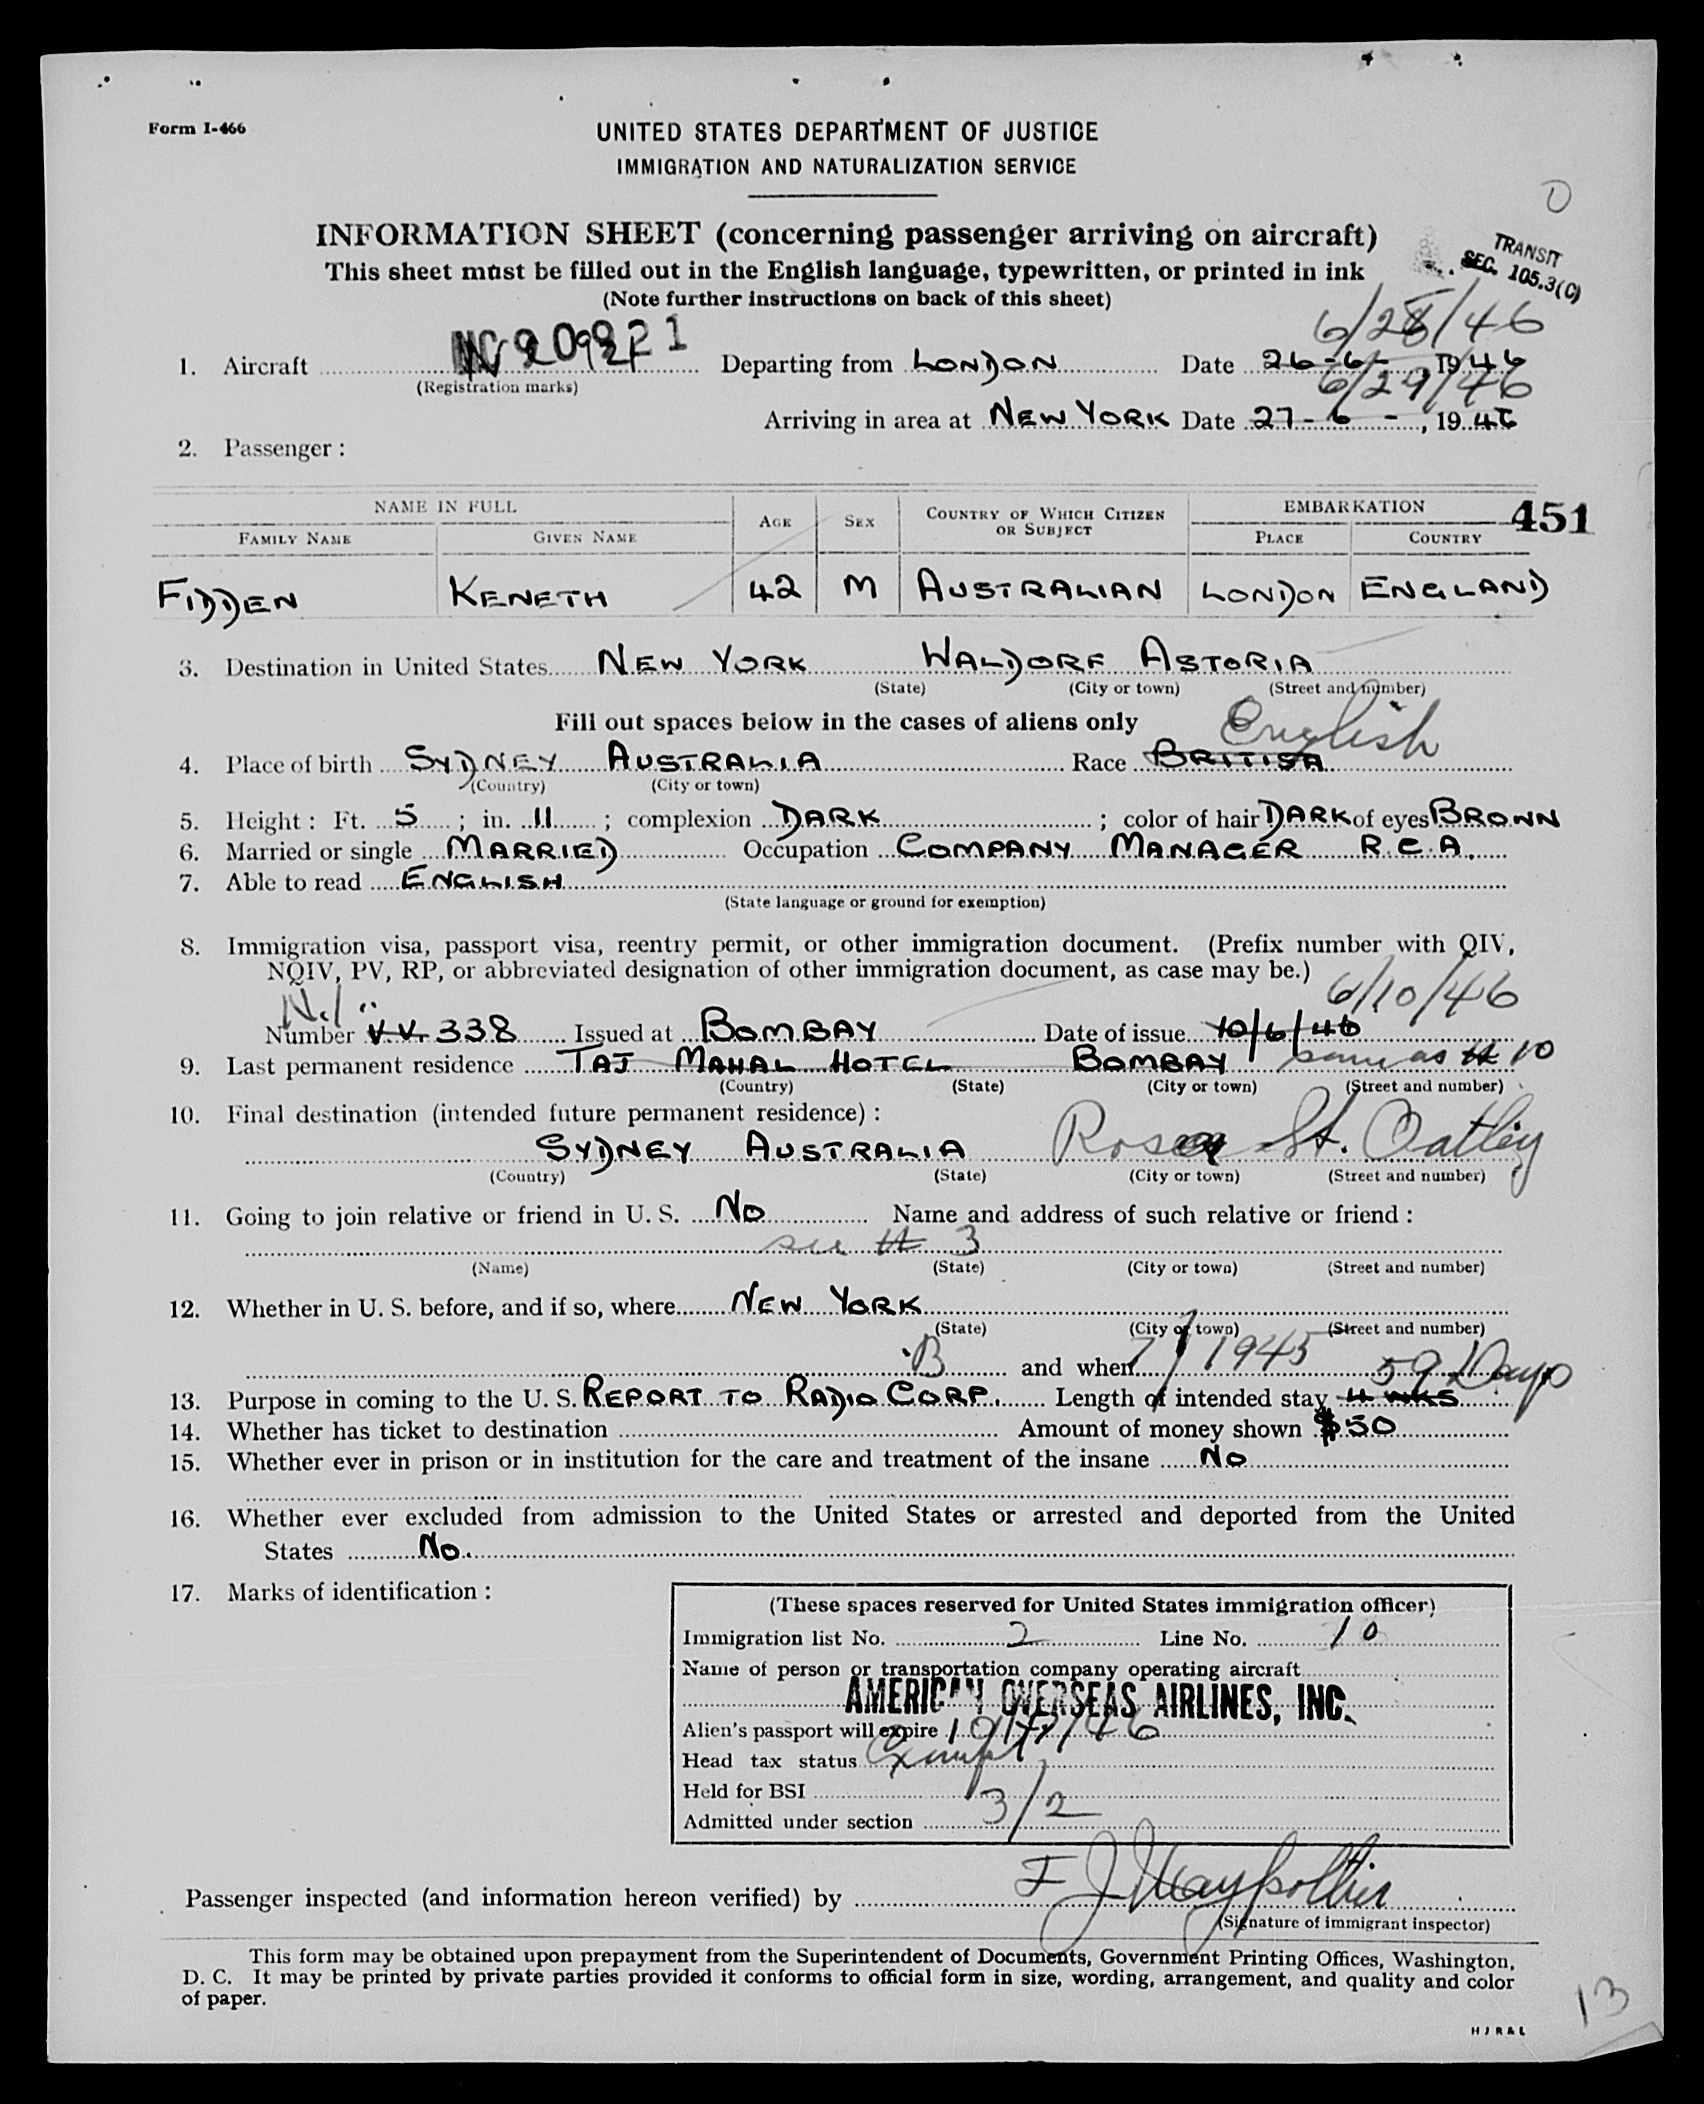 Form I-466
UNITED STATES DEPARTMENT OF JUSTICE
IMMIGRATION AND NATURALIZATION SERVICE
INFORMATION SHEET (concerning passenger arriving on aircraft)
This sheet must be filled out in the English language, typewritten, or printed in ink
(Note further instructions on back of this sheet)
TRANSIT
SEC. 105.3(C)
6/28/46
1. Aircraft Departing from LONDON Date 26-6-, 1946
(Registration marks)
6/29/46
Arriving in area at NEW YORK Date 27-6-, 1946
2. Passenger :
NAME IN FULL AGE SEX COUNTRY OF WHICH CITIZEN OR SUBJECT EMBARKATION 451
FAMILY NAME GIVEN NAME PLACE COUNTRY
FIDDEN KENETH 42 M AUSTRALIAN LONDON ENGLAND
3. Destination in United States NEW YORK WALDORF ASTORIA
(State) (City or town) (Street and number)
Fill out spaces below in the cases of aliens only
English
4. Place of birth SYDNEY AUSTRALIA Race BRITISH
(Country) (City or town)
5. Height : Ft. 5 ; in. 11 ; complexion DARK ; color of hair DARK of eyes BROWN
6. Married or single MARRIED Occupation COMPANY MANAGER R.C.A.
7. Able to read ENGLISH
(State language or ground for exemption)
8. Immigration visa, passport visa, reentry permit, or other immigration document. (Prefix number with QIV,
NQIV, PV, RP, or abbreviated designation of other immigration document, as case may be.)
6/10/46
Number V.V. 338 Issued at BOMBAY Date of issue 10/6/46
9. Last permanent residence TAJ MAHAL HOTEL BOMBAY same as # 10
(Country) (State) (City or town) (Street and number)
10. Final destination (intended future permanent residence) :
SYDNEY AUSTRALIA St. Oatley
(Country) (State) (City or town) (Street and number)
11. Going to join relative or friend in U. S. NO Name and address of such relative or friend :
see # 3
(Name) (State) (City or town) (Street and number)
12. Whether in U. S. before, and if so, where NEW YORK
(State) (City or town) (Street and number)
B and when 7/1945
59 Days
13. Purpose in coming to the U. S. REPORT TO RADIO CORP. Length of intended stay 4 WKS
14. Whether has ticket to destination Amount of money shown $50
15. Whether ever in prison or in institution for the care and treatment of the insane NO
16. Whether ever excluded from admission to the United States or arrested and deported from the United
States NO.
17. Marks of identification :
(These spaces reserved for United States immigration officer)
Immigration list No. 2 Line No. 10
Name of person or transportation company operating aircraft
AMERICAN OVERSEAS AIRLINES, INC.
Alien's passport will expire
Head tax status Exempt
Held for BSI
Admitted under section 3/2
Passenger inspected (and information hereon verified) by
(Signature of immigrant inspector)
This form may be obtained upon prepayment from the Superintendent of Documents, Government Printing Offices, Washington,
D. C. It may be printed by private parties provided it conforms to official form in size, wording, arrangement, and quality and color
of paper.
13
H J R & L